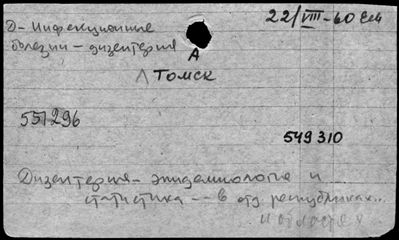 22/VIII-60 ЕМ
Д- Инфекционные
болезни - дизентерия
А
Томск
551296
549310
Дизентерия - эпидемиология и
статистика -- в отд республиках...
и областях